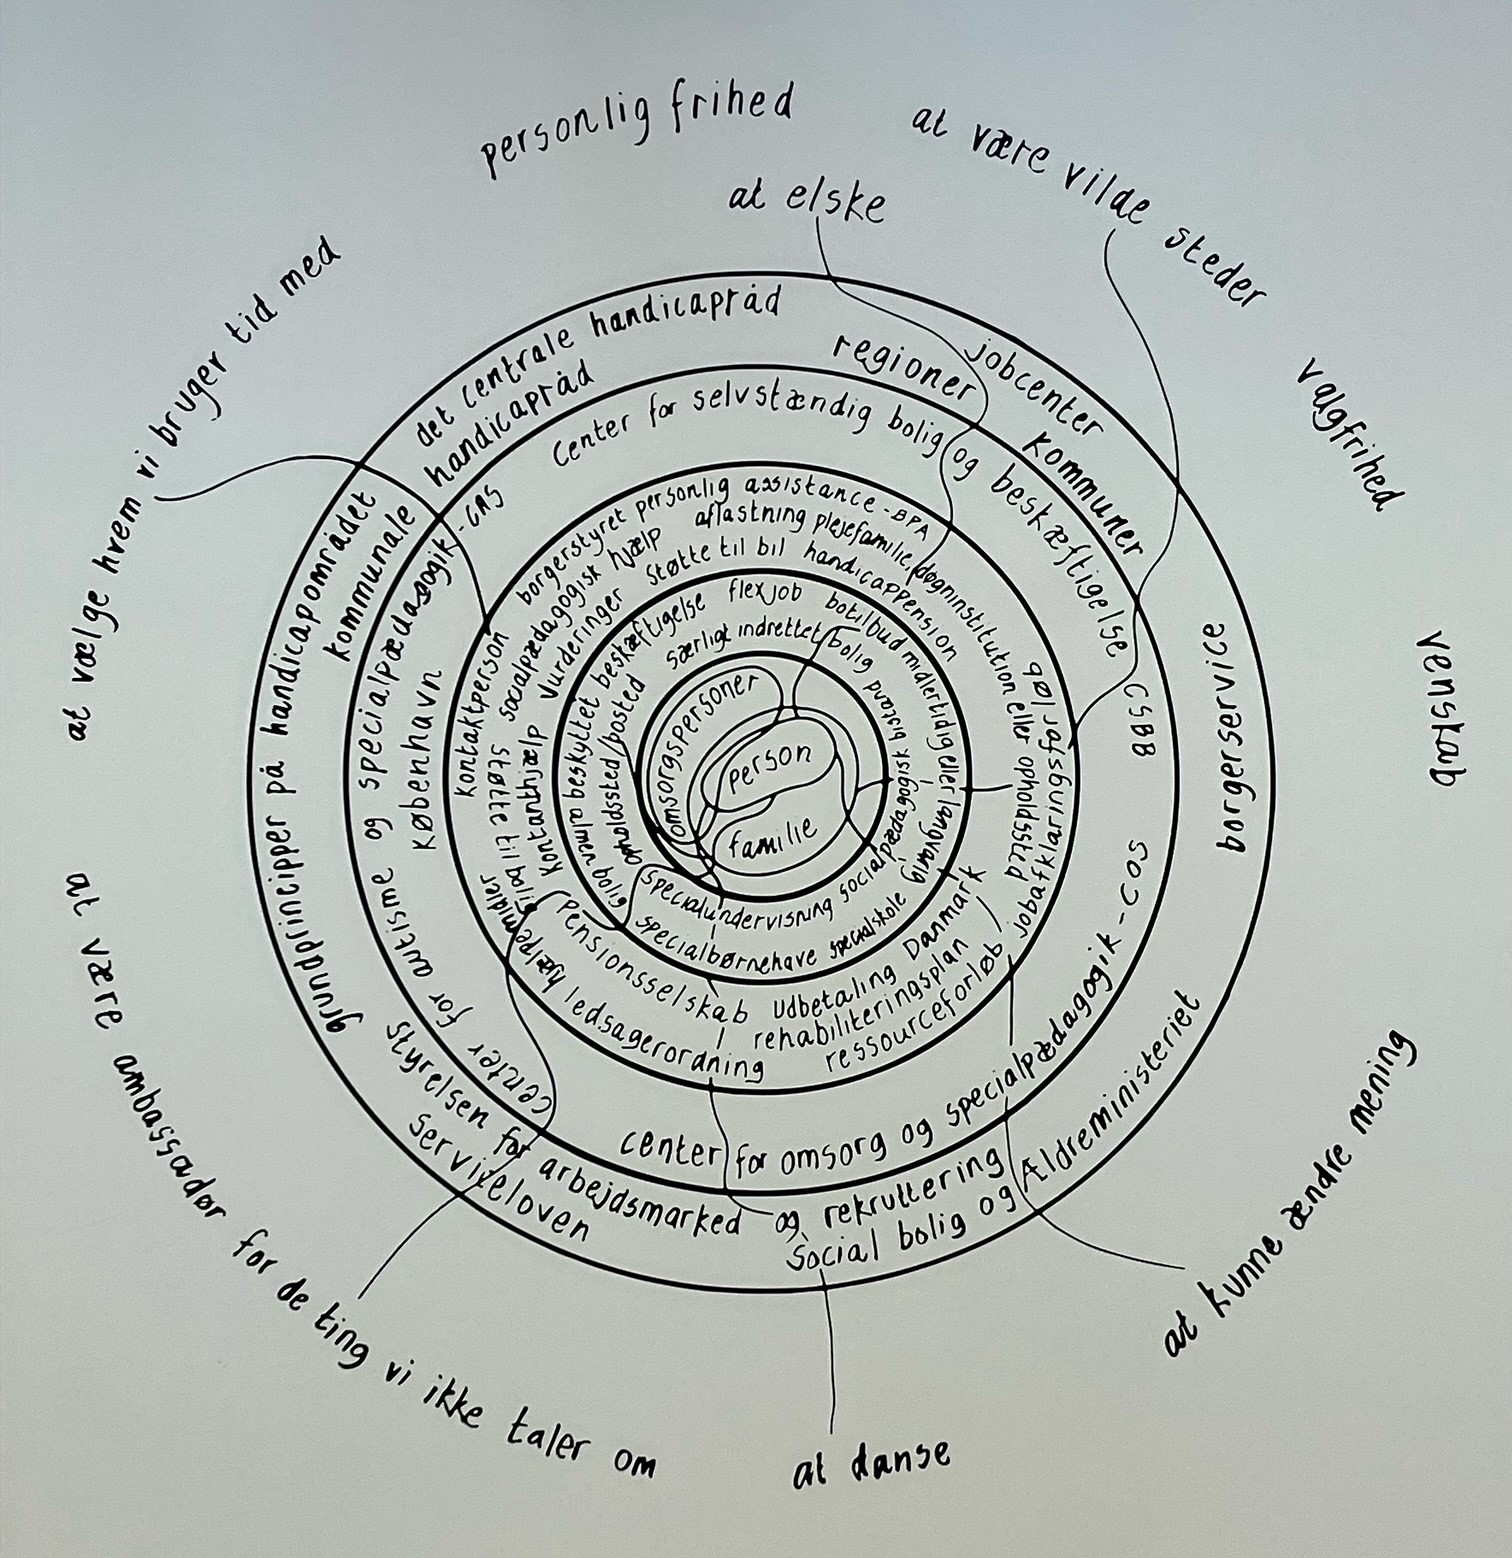 personlig frihed
at være vilde steder
at elske
valgfrihed
venskab
at kunne ændre mening
at danse
at være ambassadør for de ting vi ikke taler om
at vælge hvem vi bruger tid med
det centrale handicapråd
jobcenter
regioner
kommuner
borgerservice
Social bolig og Ældreministeriet
Serviceloven
styrelsen for arbejdsmarked og rekruttering
grundprincipper på handicapområdet
kommunale handicapråd
Center for selvstændig bolig og beskæftigelse CSBB
center for omsorg og specialpædagogik - COS
center for autisme og specialpædagogik - CAS
København
borgerstyret personlig assistance - BPA
aflastning plejefamilie, døgninstitution eller opholdssted
jobafklaringsforløb
ressourceforløb
rehabiliteringsplan
Udbetaling Danmark
ledsagerordning
hjælpemidler
pensionsselskab
støtte til bolig
kontanthjælp
kontaktperson
socialpædagogisk hjælp
Vurderinger
støtte til bil
handicappension
flexjob
botilbud midlertidig eller langvarig
specialskole
specialbørnehave
almen bolig
beskyttet beskæftigelse
særligt indrettet bolig
socialpædagogisk bistand
specialundervisning
opholdssted/bosted
omsorgspersoner
person
familie